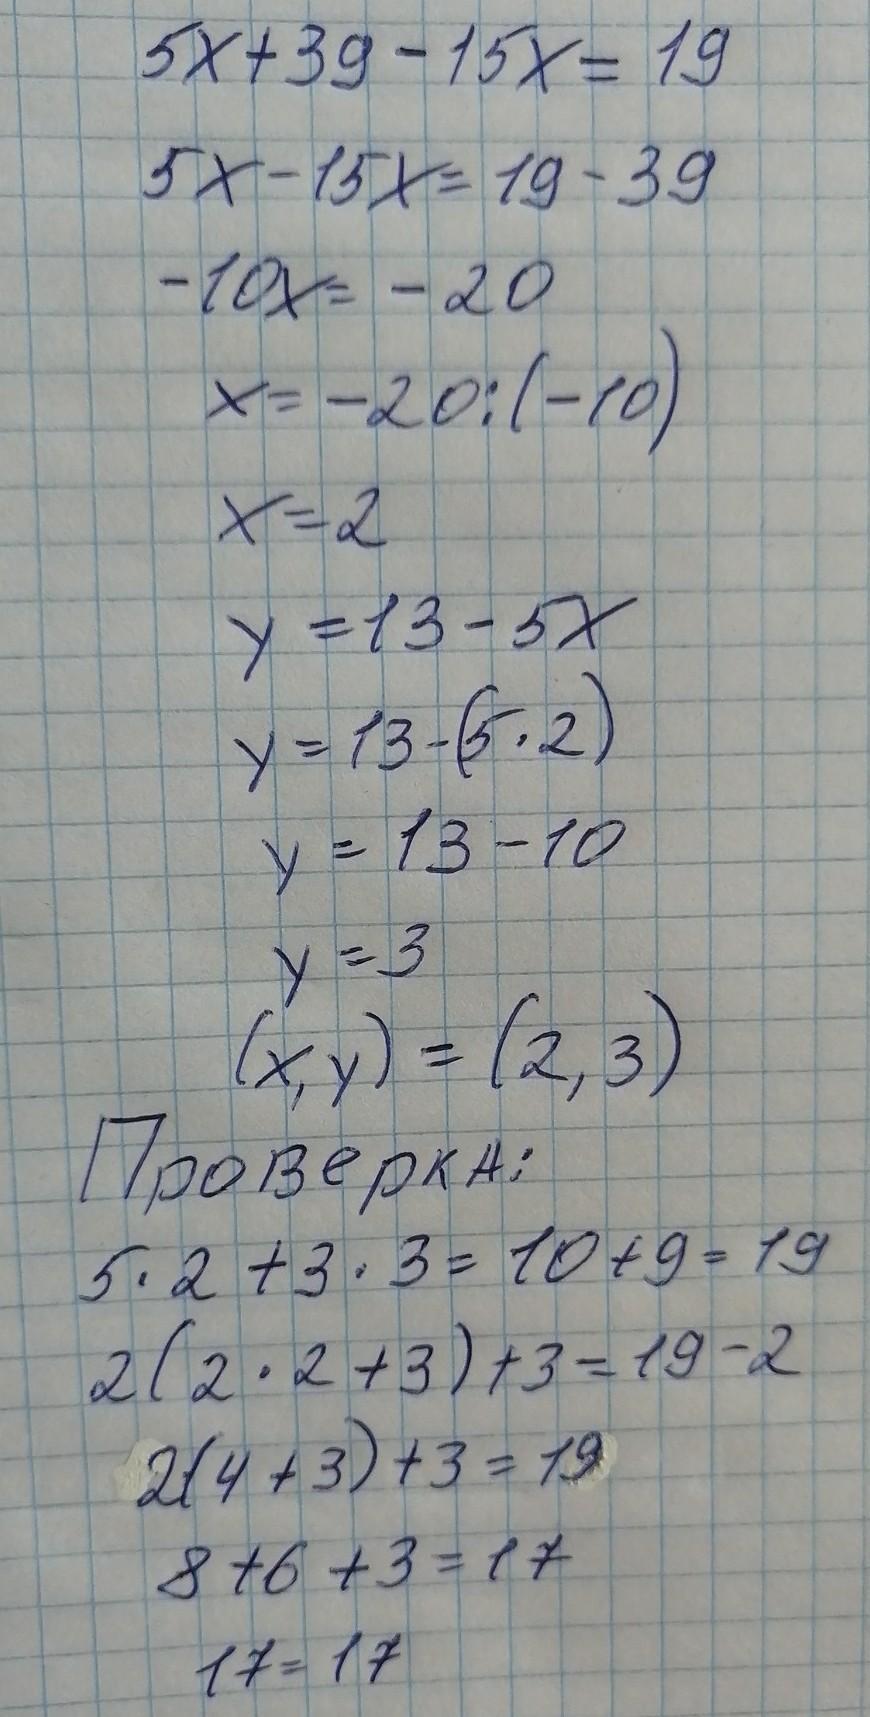 5x+39-15x=19
5x-15x=19-39
-10x=-20
x=-20:(-10)
x=2
y=13-5x
y=13-(5·2)
y=13-10
y=3
(x,y)=(2,3)
Проверка:
5·2+3·3=10+9=19
2(2·2+3)+3=19-2
2(4+3)+3=19
8+6+3=17
17=17